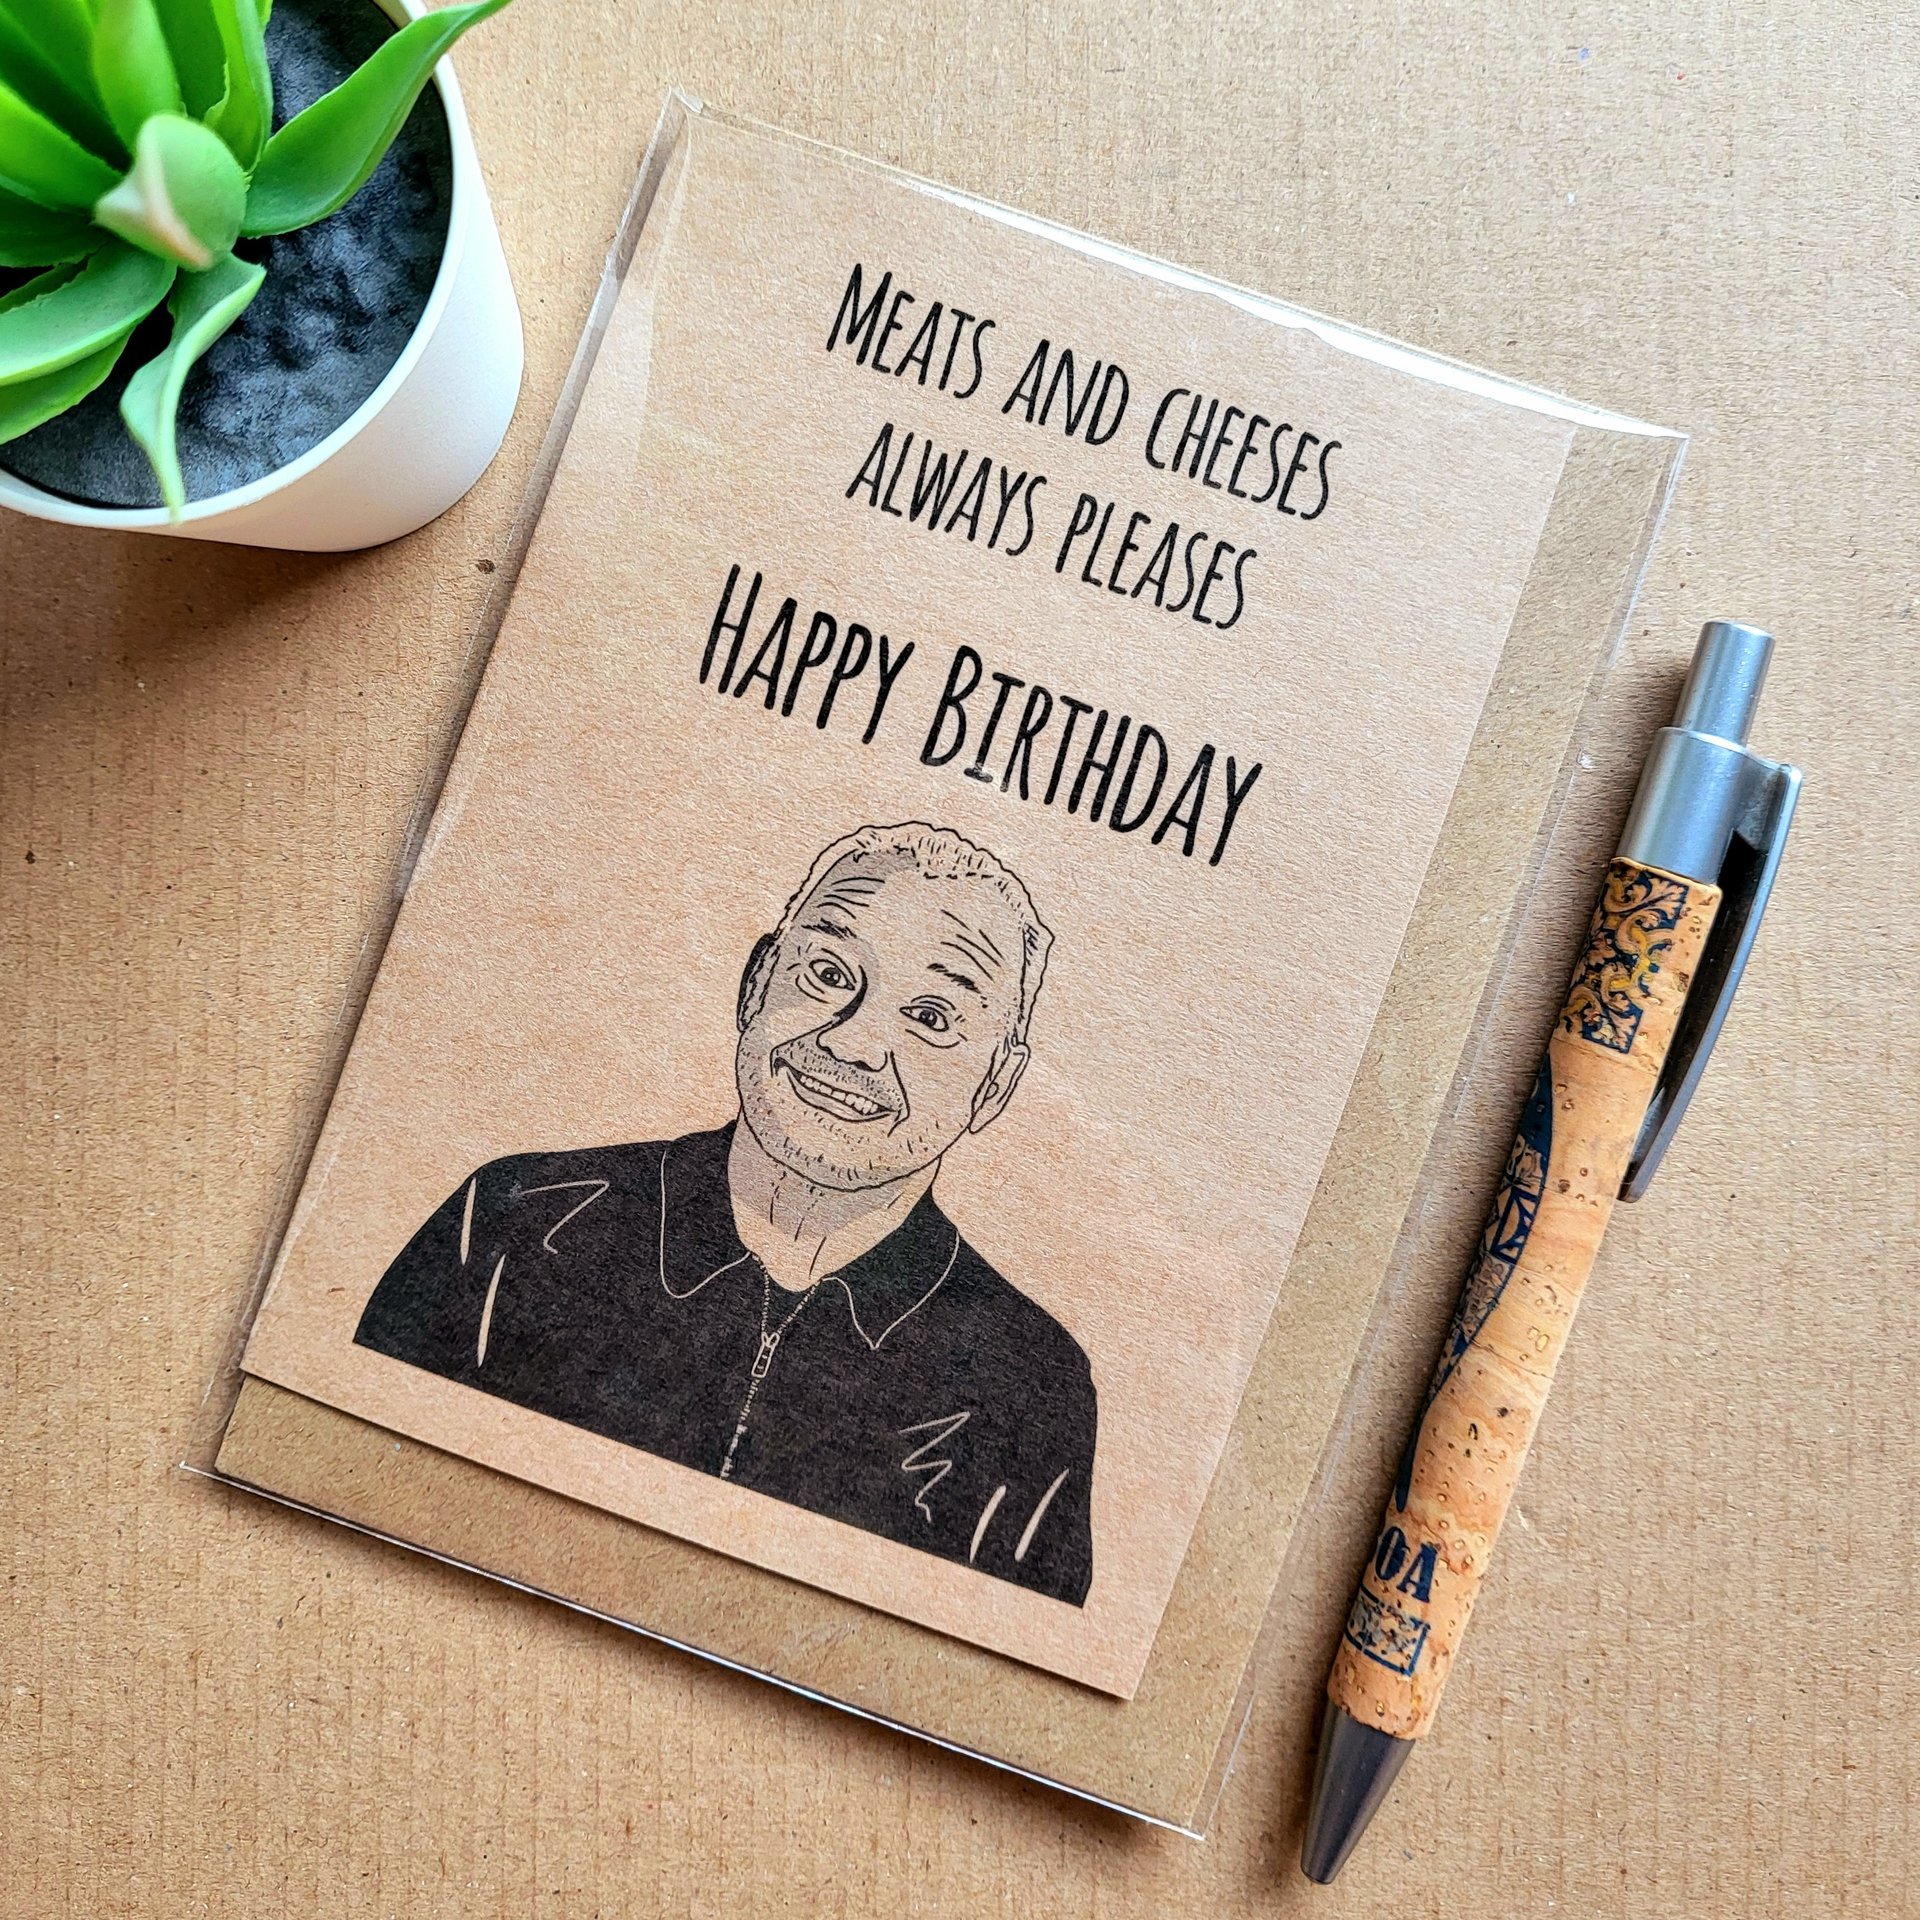 Meats and cheeses
always pleases
Happy Birthday
OA